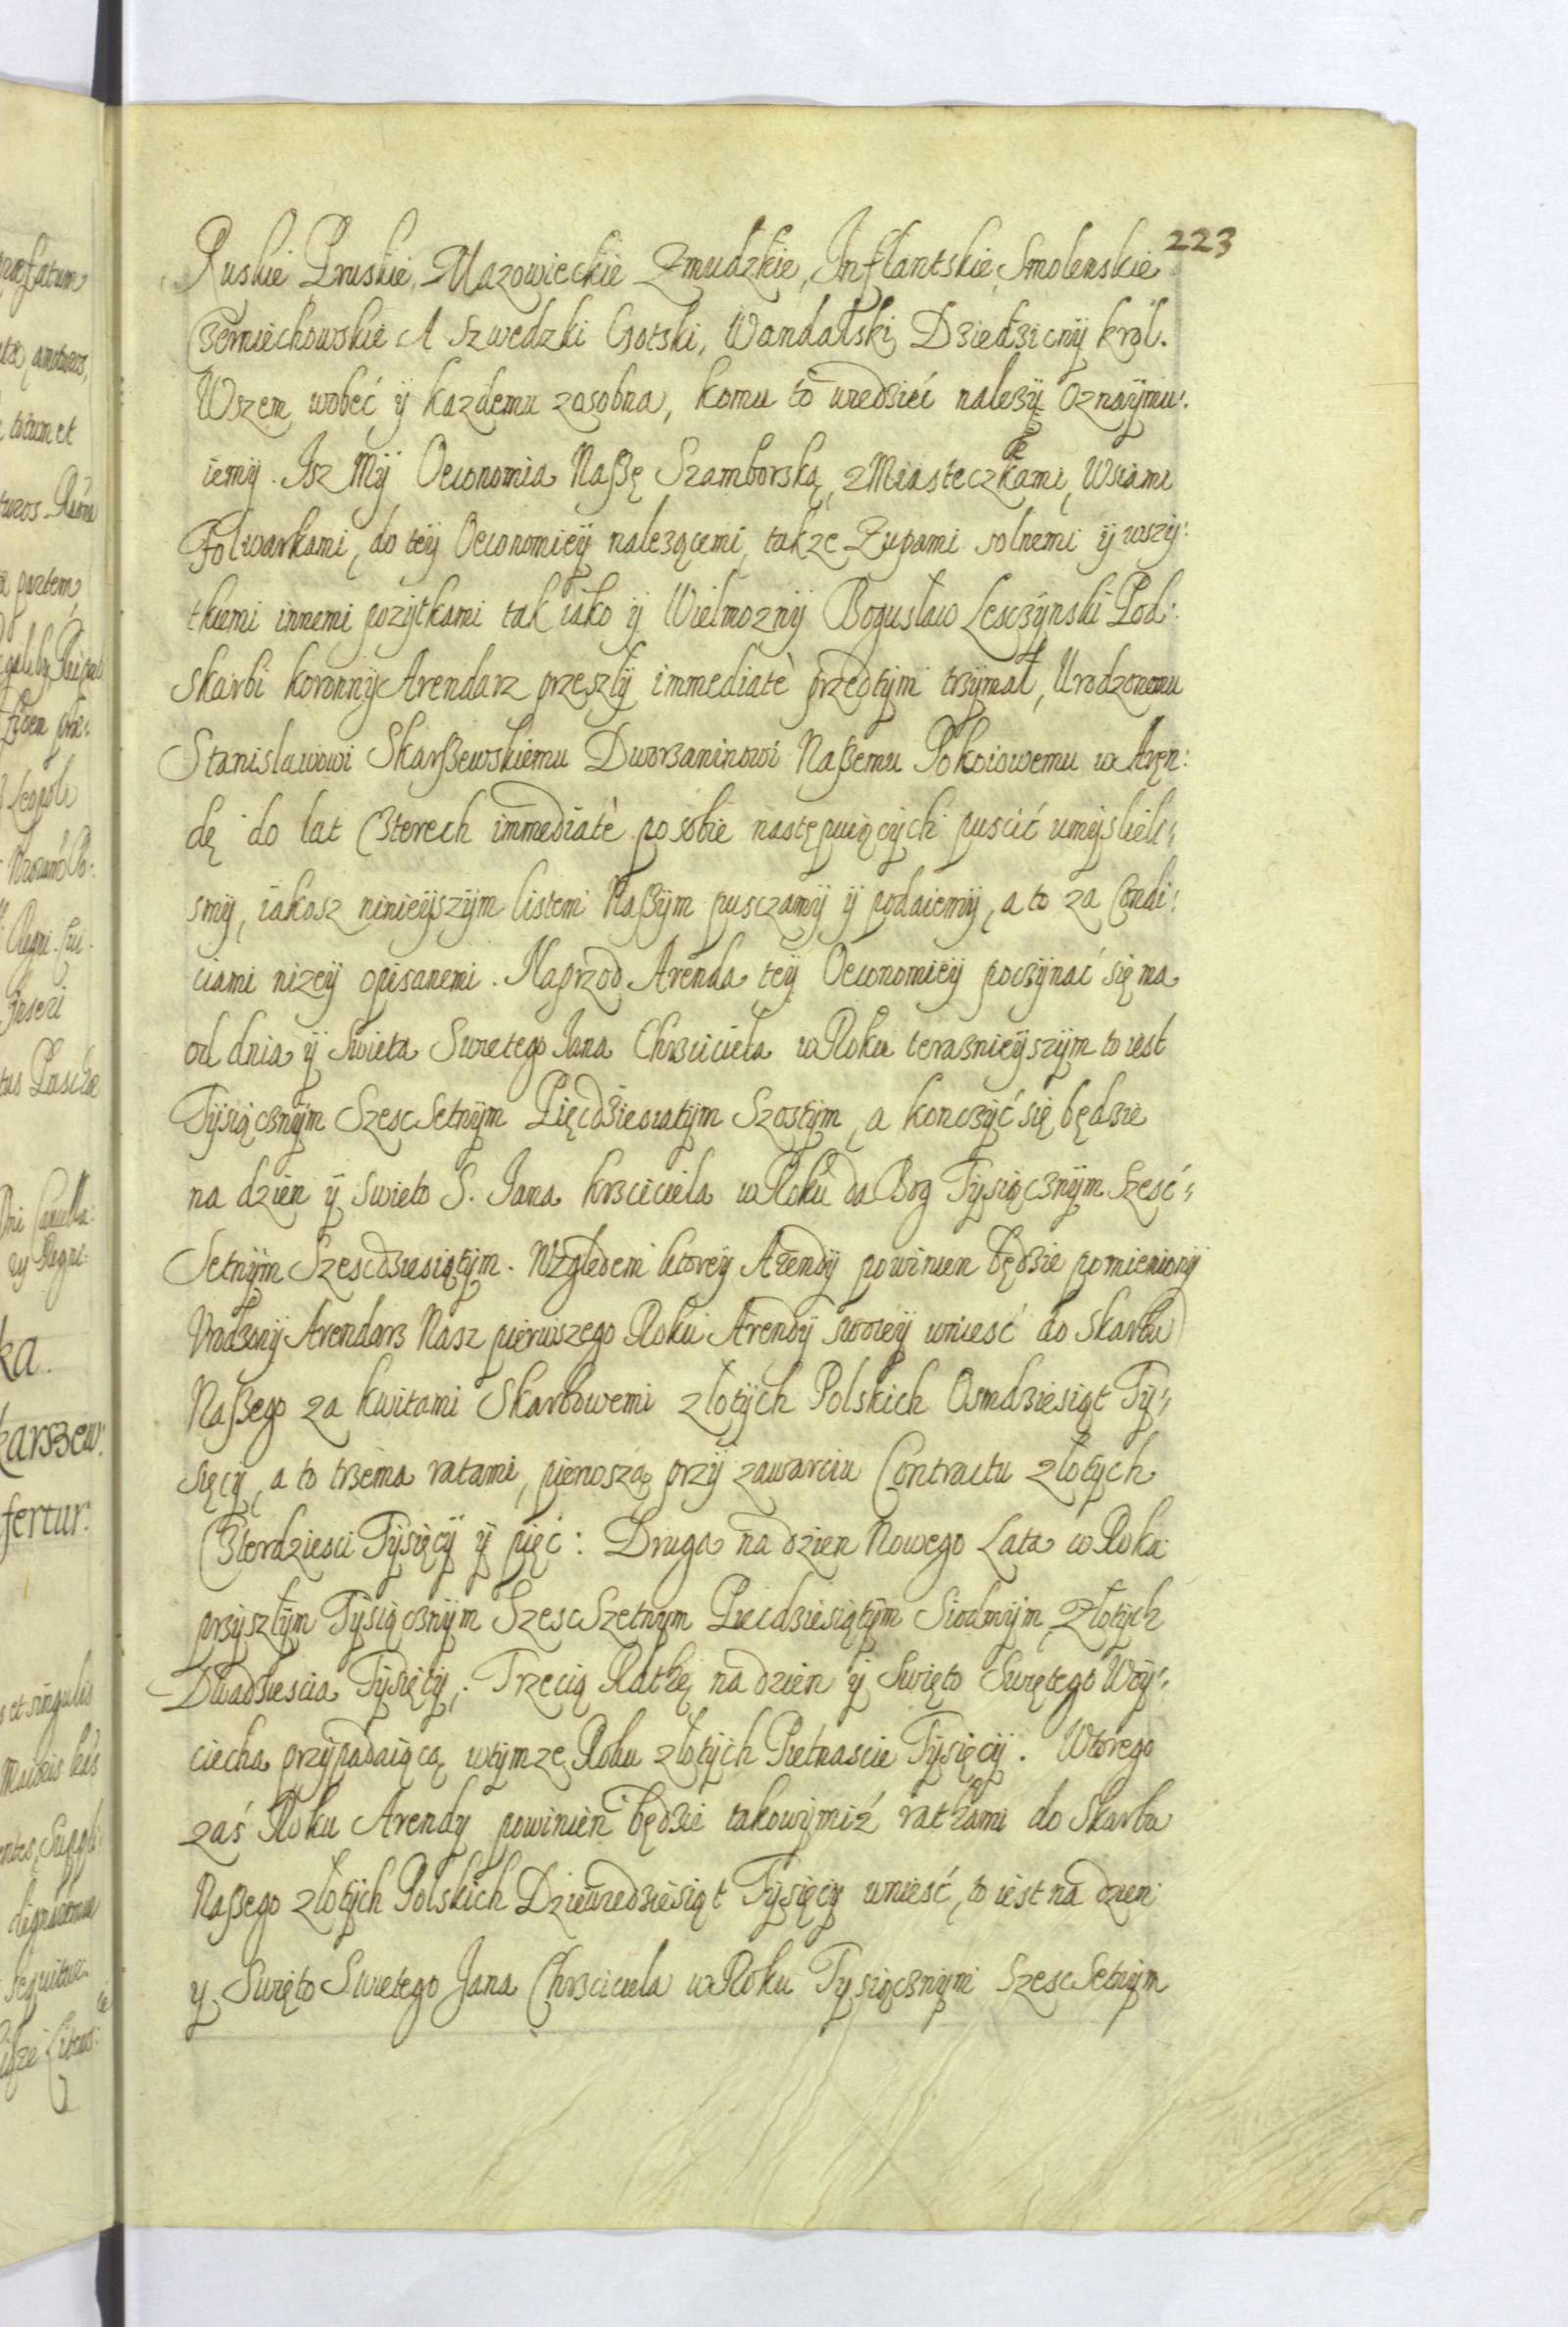 223
Ruskie Pruskie, Mazowieckie Zmudzkie, Inflantskie, Smolenskie
Czerniechowskie A Szwedzki Gotski, Wandalski Dziedzicny krol.
Wszem wobec ÿ kazdemu zosobna, komu to wiedzieć nalezÿ Oznaÿmu:
iemÿ. Isz Mÿ Oeconomia Naßę Szamborską, z Miasteczkami, Wsiami
Folwarkami, do teÿ Oeconomieÿ nalezącemi, takze Zupami solnemi ÿ wszÿ:
tkiemi innemi pozÿtkami tak iako ÿ Wielmoznÿ Bogusław Lesczÿnski Pod:
skarbi koronnÿ Arendarz przeszlÿ immediatè przedtÿm trzÿmał, Urodzonemu
Stanislawowi Skarßewskiemu Dworzaninowi Naßemu Pokoiowemu w Aręn:
dę do lat Czterech immediatè po sobie następuiącÿch puscić umÿslieli:
smÿ, iakosz ninieÿszÿm listem Naßÿm pusczamÿ ÿ podaiemÿ, a to za Condi:
ciami nizeÿ opisanemi. Naprzod Arenda teÿ Oeconomieÿ poczÿnać się ma
od dnia ÿ Swieta Swietego Jana Chrzciciela w Roku teraznieÿszÿm to iest
Tÿsiącznÿm Szesc Setnÿm Pięcdziesiatÿm Szostÿm, a konczÿć się będzie
na dzien ÿ swieto S. Jana krzciciela w Roku da Bog Tÿsiącznÿm Szesć:
Setnÿm Szescdziesiątÿm. Względem ktoreÿ Arendÿ powinien będzie pomienionÿ
Urodzonÿ Arendarz Nasz pierwszego Roku Arendÿ swoieÿ wniesć do Skarbu
Naßego za kwitami Skarbowemi złotÿch Polskich Osmdziesiąt Tÿ:
sięcÿ, a to trzema ratami, pierwszą przÿ zawarciu Contractu złotÿch
Czterdziesci Tÿsięcÿ ÿ pięć: Druga na dzien Nowego Lata w Roku
przÿszłÿm Tÿsiącznÿm Szesc Szetnym Piecdziesiątÿm Siodmÿm, Złotÿch
Dwadziescia Tÿsięcÿ. Trzecią Rathę na dzien ÿ Swięto Swiętego Woÿ:
ciecha przÿpadaiącą w tÿmze Roku złotÿch Pietnascie Tÿsięcÿ. Wtorego
zaś Roku Arendy powinien będzie takowÿmiż rathami do Skarbu
Naßego złotÿch Polskich Dziewiedziesiąt Tÿsięcÿ wniesć, to iest na dzien
y Swięto Swietego Jana Chrzciciela w Roku Tysiącznÿm Szesc Setnÿm